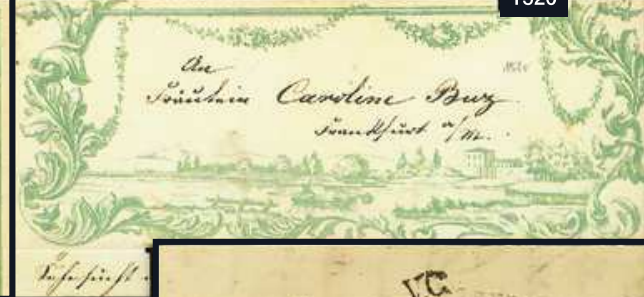 1520
An
Fräulein Caroline Buz
Frankfurt a/M.
Sehnsucht